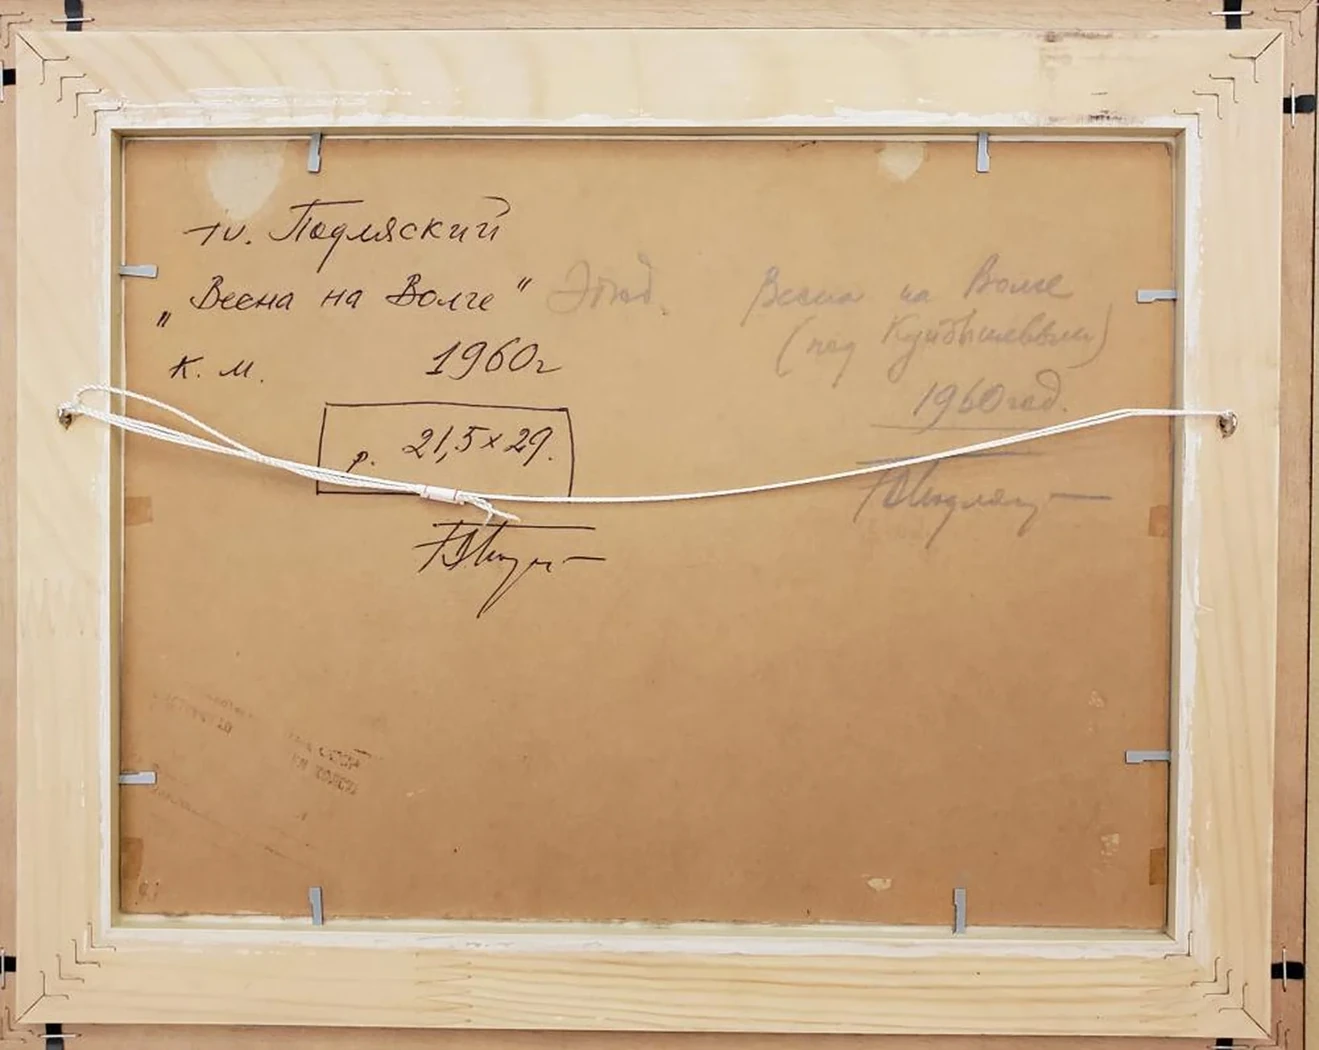 Ю. Подляский
„Весна на Волге“
К. м. 1960г
р. 21,5×29.
Этюд.
Весна на Волге
(под Куйбышевым)
1960 год.